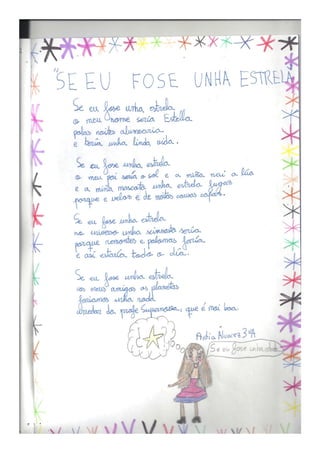 "SE EU FOSE UNHA ESTRELA
Se eu fose unha estrela
o meu nome sería Estella
polas noites alumearía
e tería unha linda vida.
Se eu fose unha estrela
o meu pai sería o sol e a miña nai a lúa
e a miña mascota unha estrela fugaz
porque é veloz e de moitas cousas capaz.
Se eu fose unha estrela
no universo unha ximnasta sería
porque remontes e palomas faría
e así estaría todo o día.
Se eu fose unha estrela
os meus amigos os planetas
fariamos unha roda
arredor da profe Supernova, que é moi boa.
Antía Núñez 3ºA
Se eu fose unha estrela